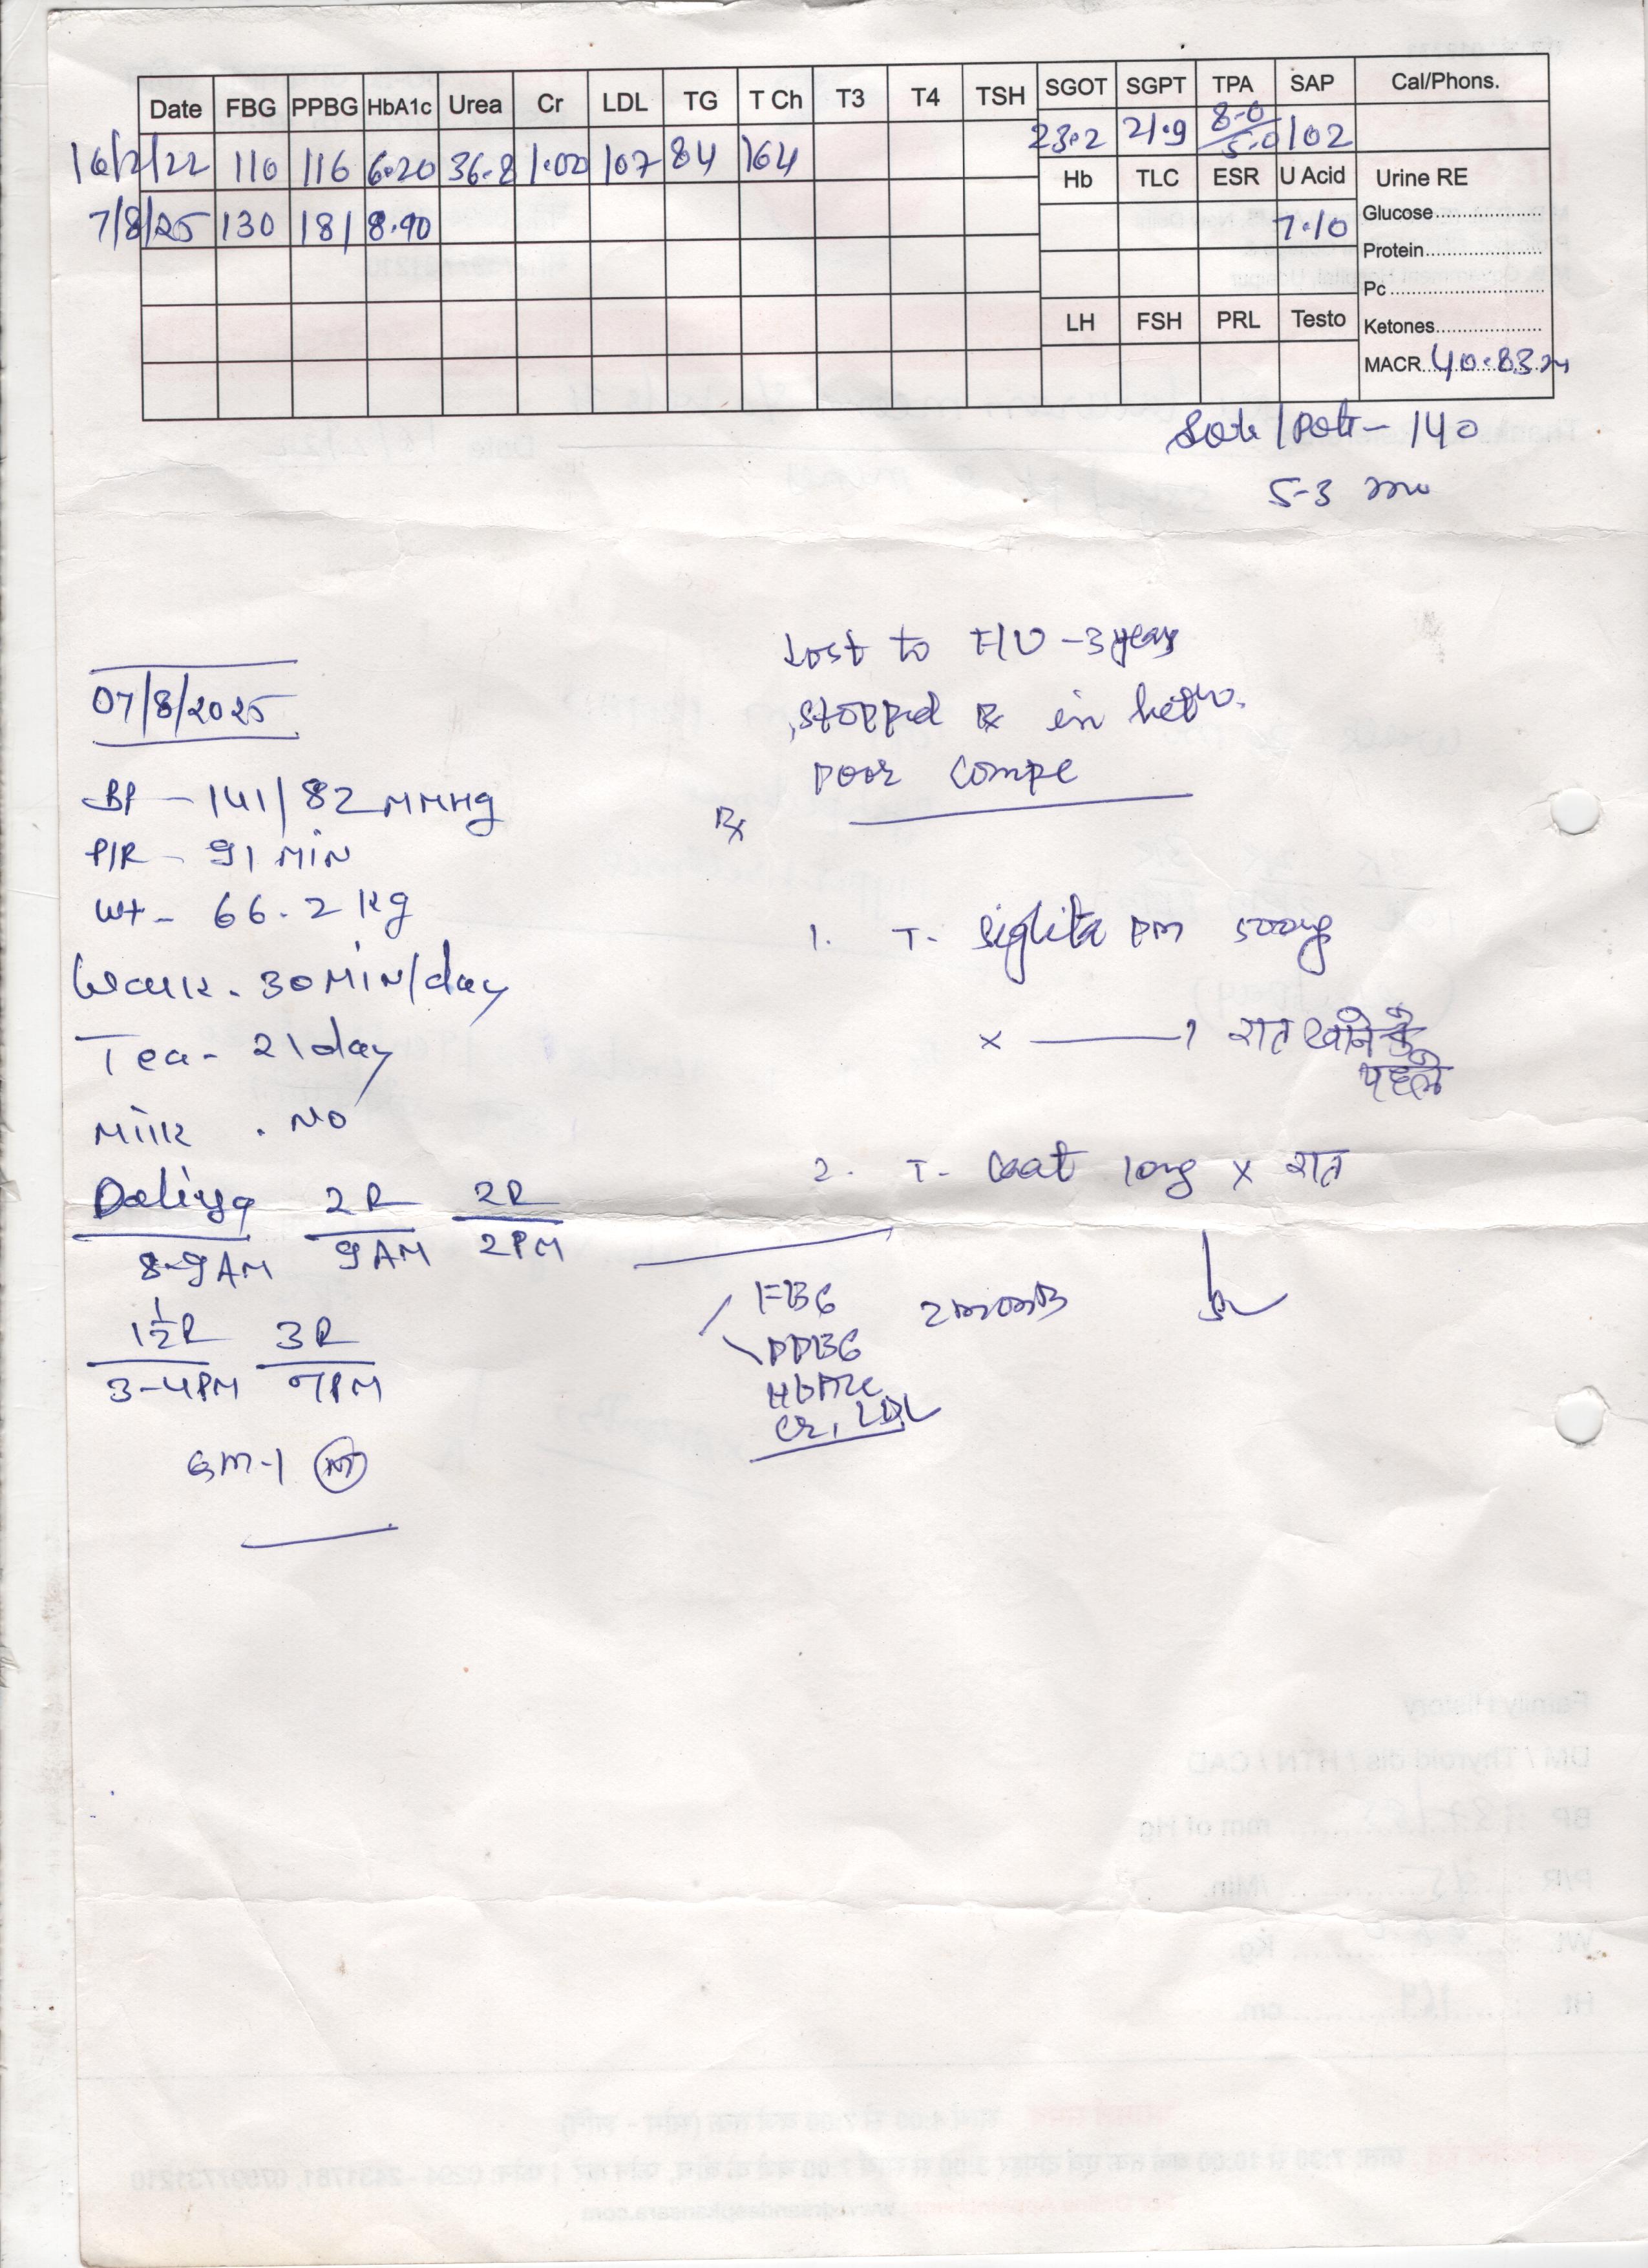 Date FBG PPBG HbA1c Urea Cr LDL TG T Ch T3 T4 TSH SGOT SGPT TPA SAP Cal/Phons.
16/2/22 110 116 6.20 36.8 1.00 107 84 164 23.2 21.9 8.0/5.0 102
Hb TLC ESR U Acid Urine RE
7/8/25 130 181 8.90 7.10
Glucose
Protein
Pc
LH FSH PRL Testo Ketones
MACR 40.83
140
5.3
Lost to F/U - 3 years
stopped Rx in
poor
07/8/2025
BP - 141/82 MMHg
P/R - 91 MIN
Wt - 66.2 kg
Walk - 30 MIN/day
Tea - 2/day
Milk - NO
Daliya 2R 2R
8-9AM 9AM 2PM
1 1/2R 3R
3-4PM 7PM
GM-1
Rx
1. T. Siglita DM 500mg
x 1 रात खाने के
पहले
2. T. 10mg x रात
FBG 2 months
PPBG
HbA1c
Cr, LDL